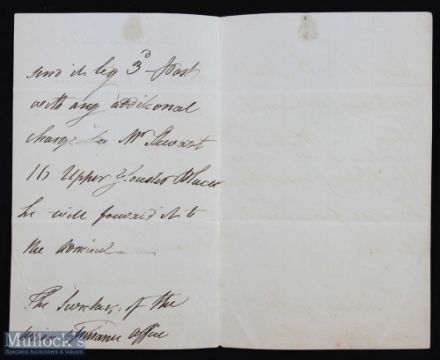 send it by 3d Post
with any additional
charge to Mr Stewart
11 Upper Gloucester Place
he will forward it to
the Admiral
The Secretary of the
Insurance Office
Mullock's
Specialist Auctioneers & Valuers